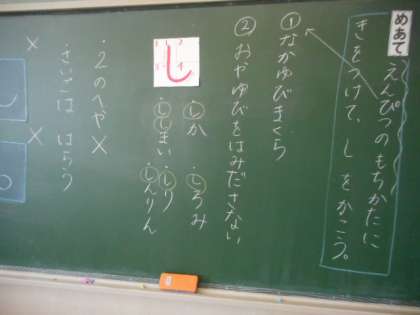 めあて
えんぴつのもちかたに
きをつけて、しをかこう。
①なかゆびまくら
②おやゆびをはみださない
し
しか
しろみ
しまい
しり
しんりん
・2のへや×
・さいごは はらう
×
×